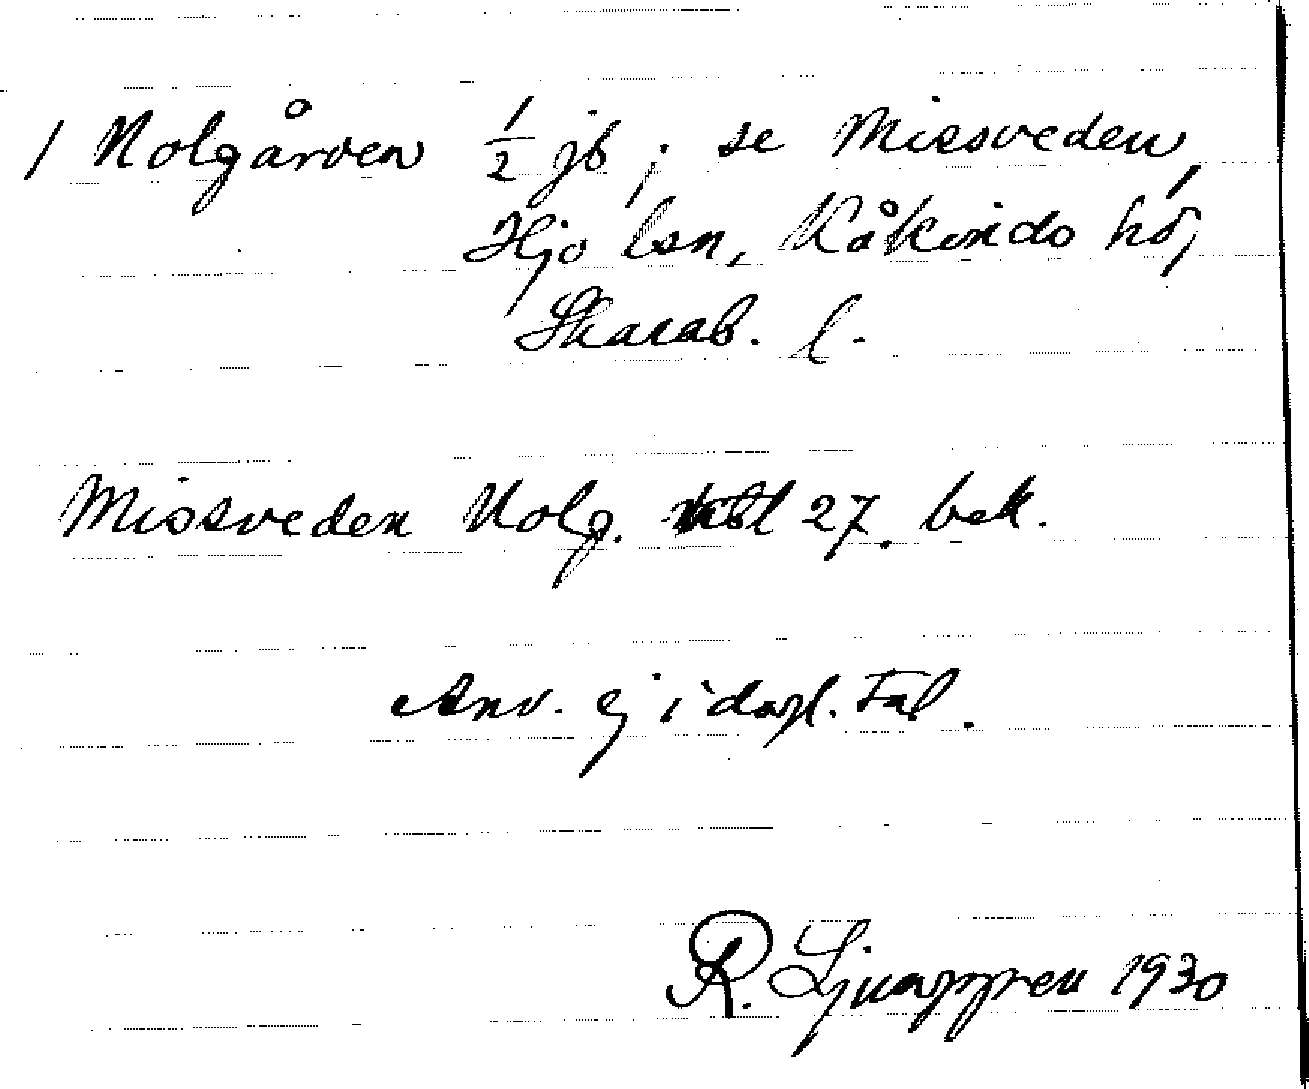 1 Nolgården 1/2 jb ; se Missveden,
Hjo lsn, Kåkinds hd,
Skarab. l.
Missveden Nolg. 27. bek.
Anv. ej i dagl. tal.
R. Ljunggren 1930